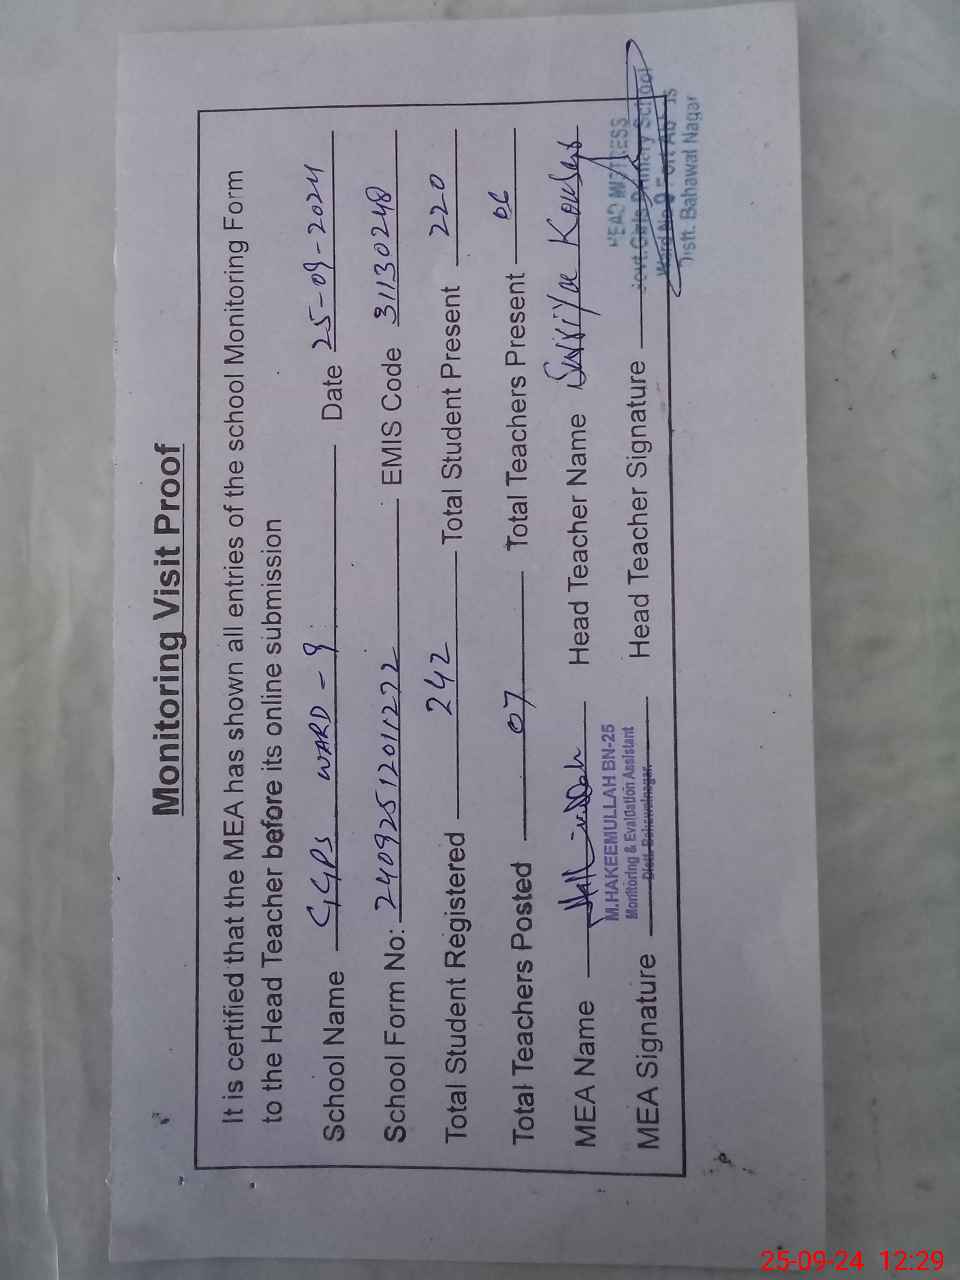 Monitoring Visit Proof
It is certified that the MEA has shown all entries of the school Monitoring Form
to the Head Teacher before its online submission
School Name GGPS WARD - 9 Date 25-09-2024
School Form No: 24092512011272 EMIS Code 31130248
Total Student Registered 242 Total Student Present 220
Total Teachers Posted 07 Total Teachers Present 06
MEA Name Head Teacher Name Kousar
M.HAKEEMULLAH BN-25
Monitoring & Evaluation Assistant
Distt. Bahawalnagar.
MEA Signature Head Teacher Signature
HEAD MISTRESS
Govt.Girls Primery School
Ward No 9 Fort Abbas
Distt. Bahawal Nagar
25-09-24 12:29